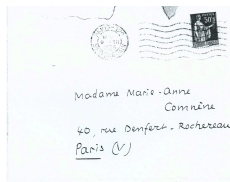 Madame Marie-Anne
Comnène
40, rue Denfert-Rochereau
Paris (V)
50c